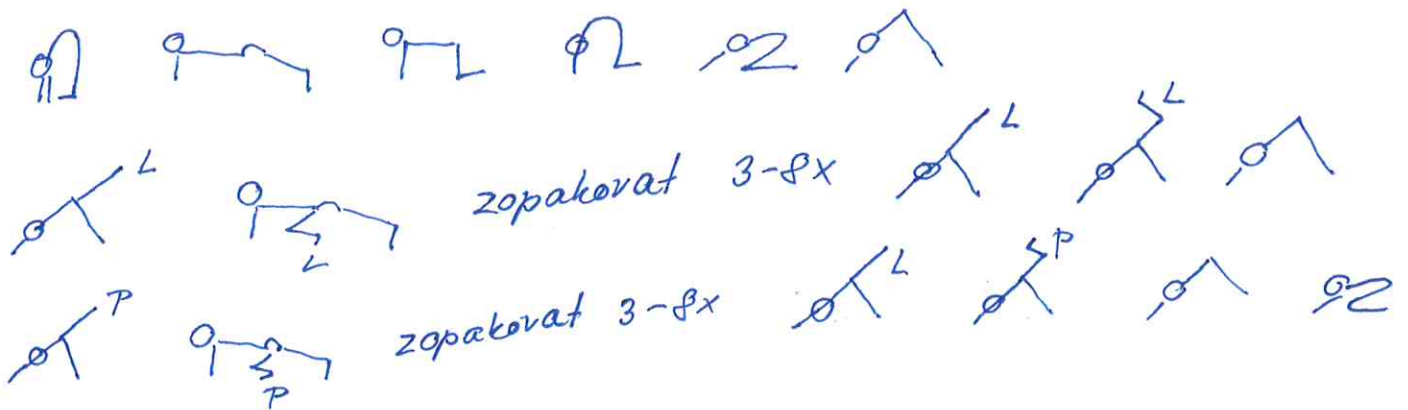 L L
L zopakovat 3-8x
L
P L P
zopakovat 3-8x
P